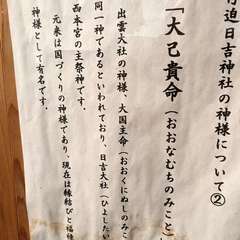 日吉神社の神様について②
「大己貴命（おおなむちのみこと
出雲大社の神様、大国主命（おおくにぬしのみこ
同一神であるといわれており、日吉大社（ひよしたい
西本宮の主祭神です。
元来は国づくりの神様であり、現在は縁結びと福
神様として有名です。